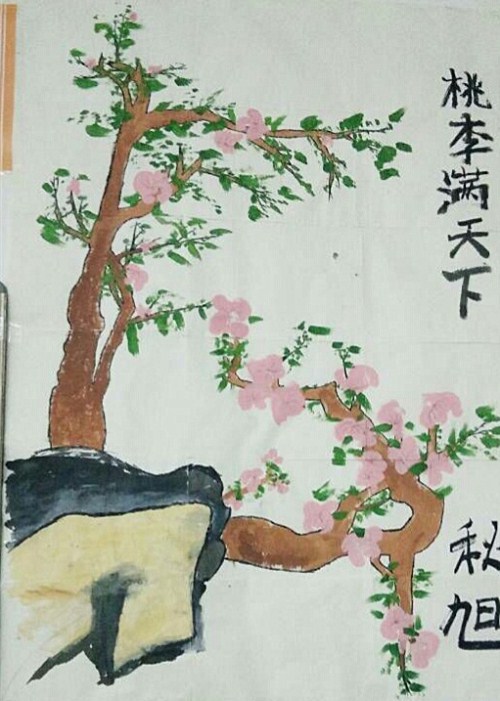 桃李满天下
秋旭